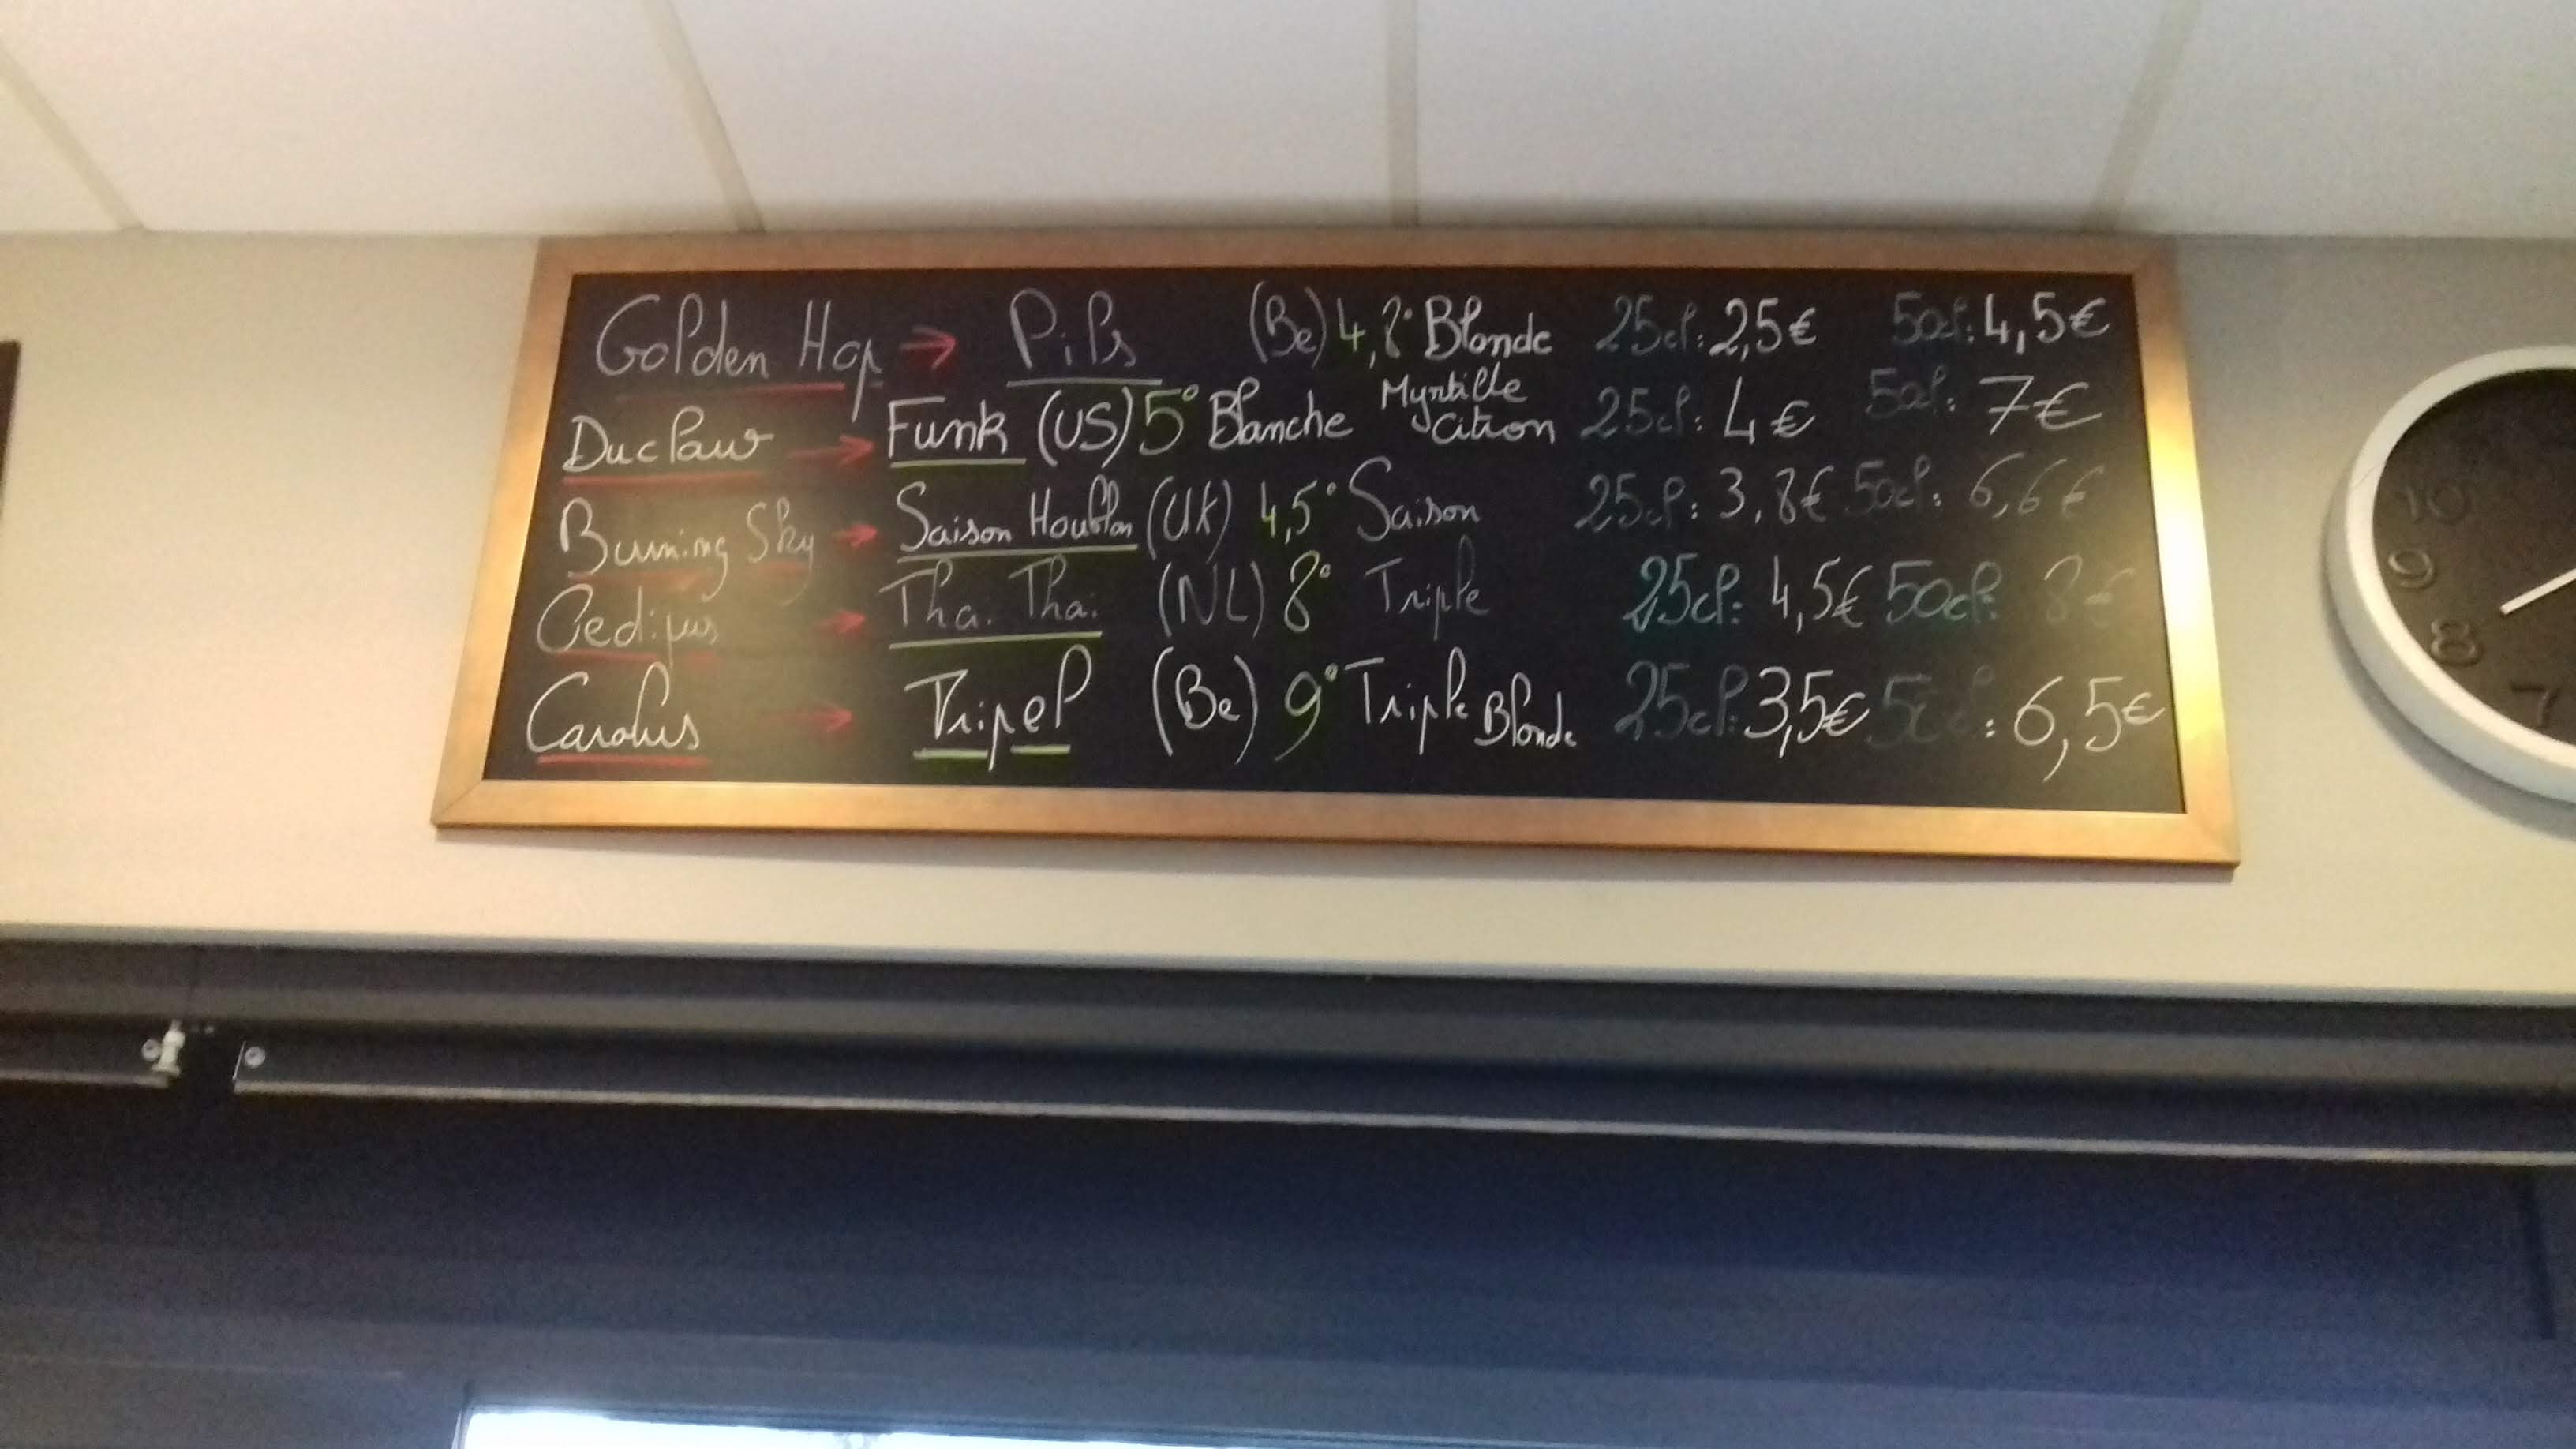 Golden Hop → Pils (Be) 4,8° Blonde 25cl: 2,5€ 50cl: 4,5€
Duclaw → Funk (US) 5° Blanche Myrtille Citron 25cl: 4€ 50cl: 7€
Burning Sky → Saison Houblon (UK) 4,5° Saison 25cl: 3,8€ 50cl: 6,6€
Oedipus → Thai Thai (NL) 8° Triple 25cl: 4,5€ 50cl: 8€
Carolus → Tripel (Be) 9° Triple Blonde 25cl: 3,5€ 50cl: 6,5€
10
9
8
7